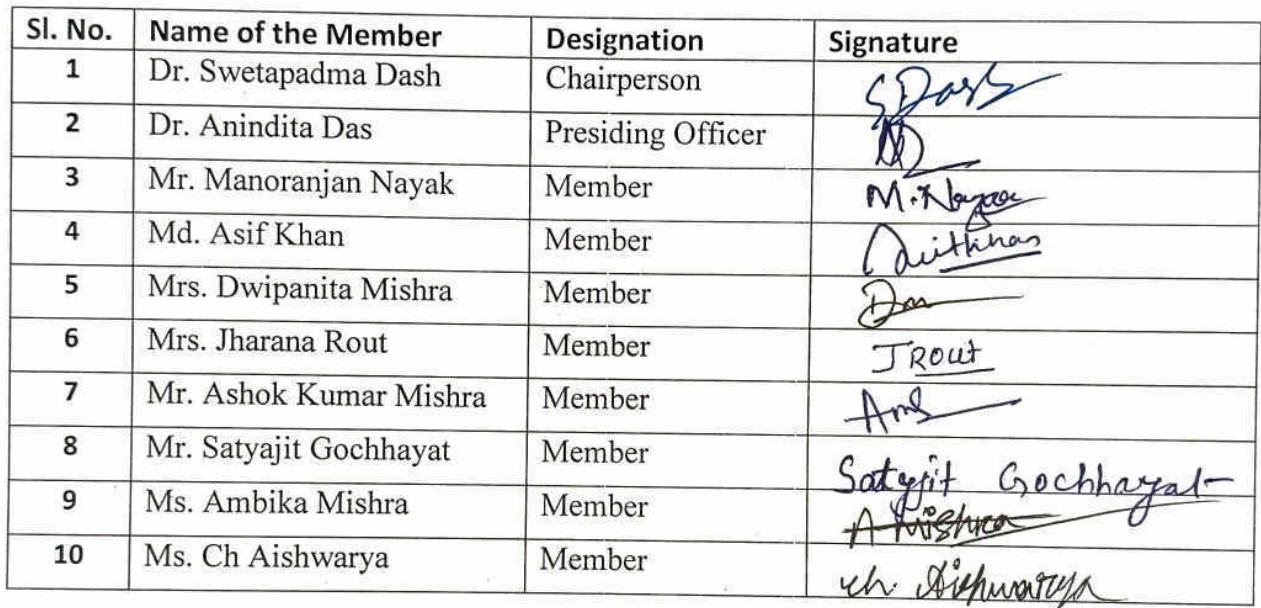 Sl. No. Name of the Member Designation Signature
1 Dr. Swetapadma Dash Chairperson S Dash
2 Dr. Anindita Das Presiding Officer
3 Mr. Manoranjan Nayak Member M. Nayak
4 Md. Asif Khan Member
5 Mrs. Dwipanita Mishra Member
6 Mrs. Jharana Rout Member J ROUT
7 Mr. Ashok Kumar Mishra Member
8 Mr. Satyajit Gochhayat Member Satyjit Gochhayat
9 Ms. Ambika Mishra Member A Mishra
10 Ms. Ch Aishwarya Member ch. Aishwarya